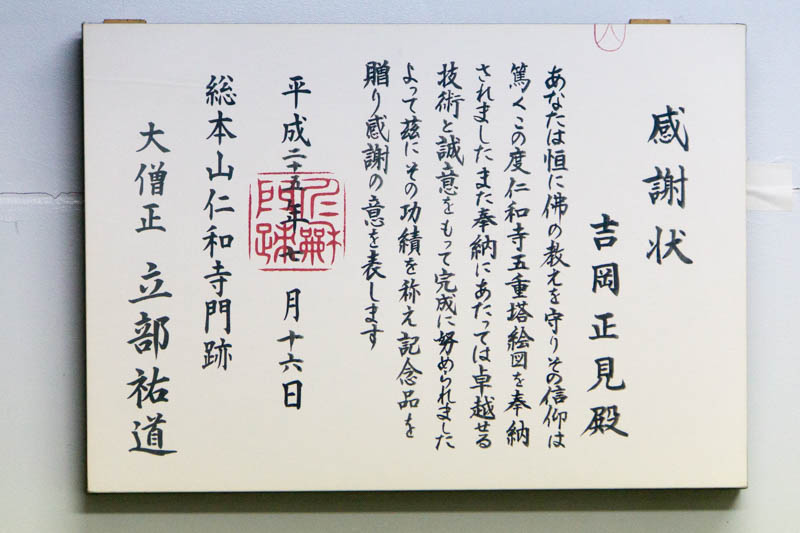 感謝状
吉岡正見殿
あなたは恒に佛の教えを守りその信仰は
篤くこの度仁和寺五重塔絵図を奉納
されましたまた奉納にあたっては卓越せる
技術と誠意をもって完成に努められました
よって茲にその功績を称え記念品を
贈り感謝の意を表します
平成二十五年七月十六日
総本山仁和寺門跡
大僧正 立部祐道
仁和
門跡